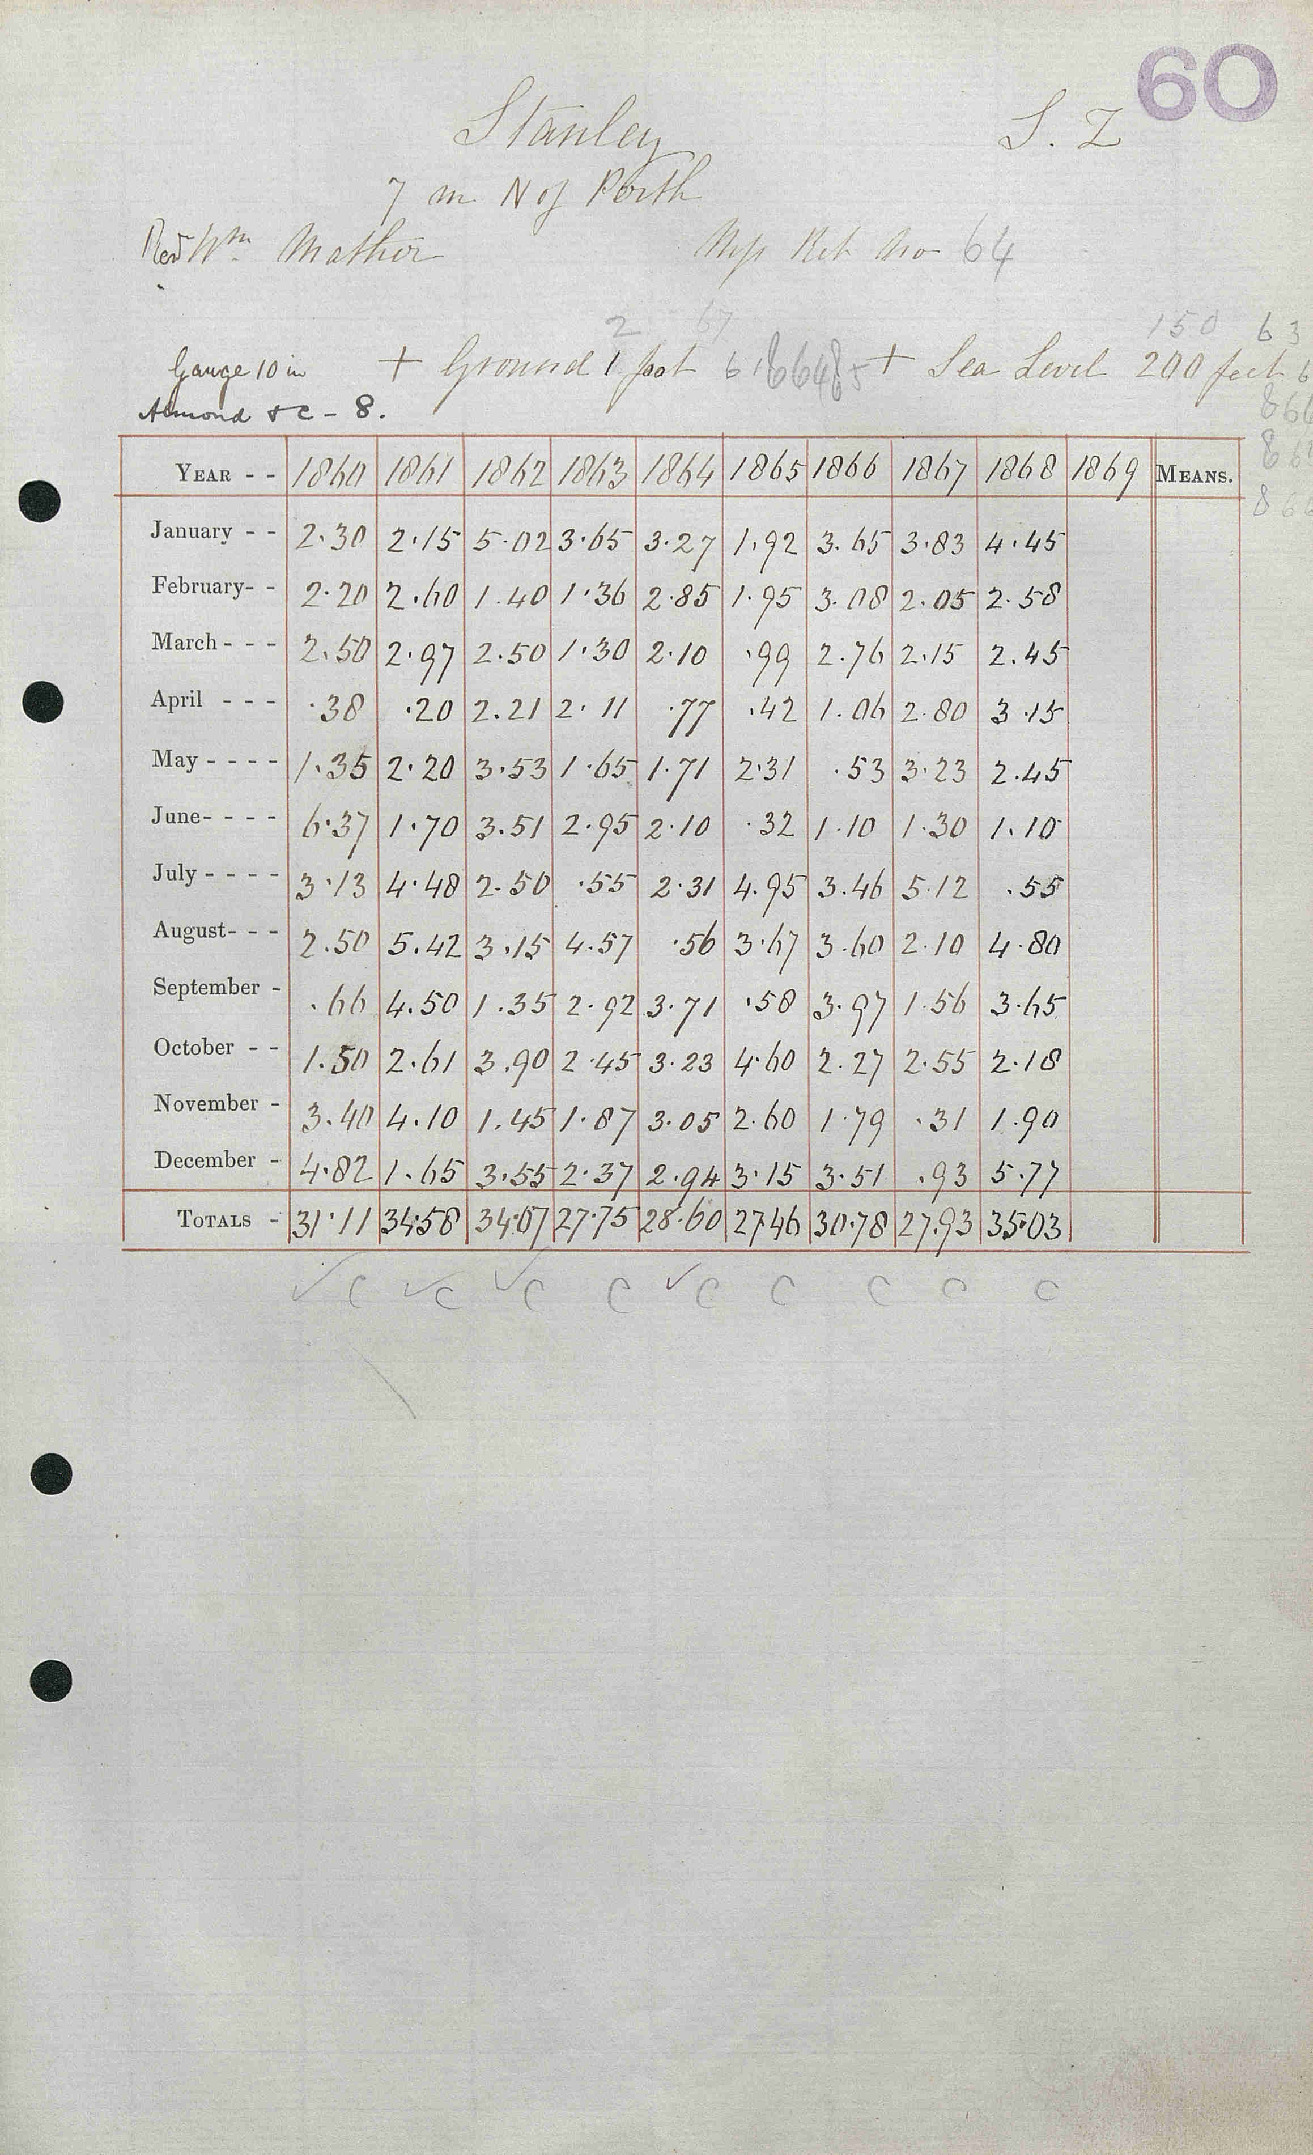 60
Stanley S. Z
7 m N of Perth
Revd Wm. Mather Mss Ret No 64
2 67 150 63
Gauge 10 in + Ground 1 foot + Sea Level 200 feet
Almond &c - 8.
YEAR - - 1860 1861 1862 1863 1864 1865 1866 1867 1868 1869 MEANS.
January - - 2.30 2.15 5.02 3.65 3.27 1.92 3.65 3.83 4.45
February- - 2.20 2.60 1.40 1.36 2.85 1.95 3.08 2.05 2.58
March - - - 2.50 2.97 2.50 1.30 2.10 .99 2.76 2.15 2.45
April - - - .38 .20 2.21 2.11 .77 .42 1.06 2.80 3.15
May - - - - 1.35 2.20 3.53 1.65 1.71 2.31 .53 3.23 2.45
June- - - - 6.37 1.70 3.51 2.95 2.10 .32 1.10 1.30 1.10
July - - - - 3.13 4.48 2.50 .55 2.31 4.95 3.46 5.12 .55
August- - - 2.50 5.42 3.15 4.57 .56 3.67 3.60 2.10 4.80
September - .66 4.50 1.35 2.92 3.71 .58 3.97 1.56 3.65
October - - 1.50 2.61 3.90 2.45 3.23 4.60 2.27 2.55 2.18
November - 3.40 4.10 1.45 1.87 3.05 2.60 1.79 .31 1.90
December - 4.82 1.65 3.55 2.37 2.94 3.15 3.51 .93 5.77
TOTALS - 31.11 34.58 34.07 27.75 28.60 27.46 30.78 27.93 35.03
✓ C ✓ C ✓ C C ✓ C C C C C